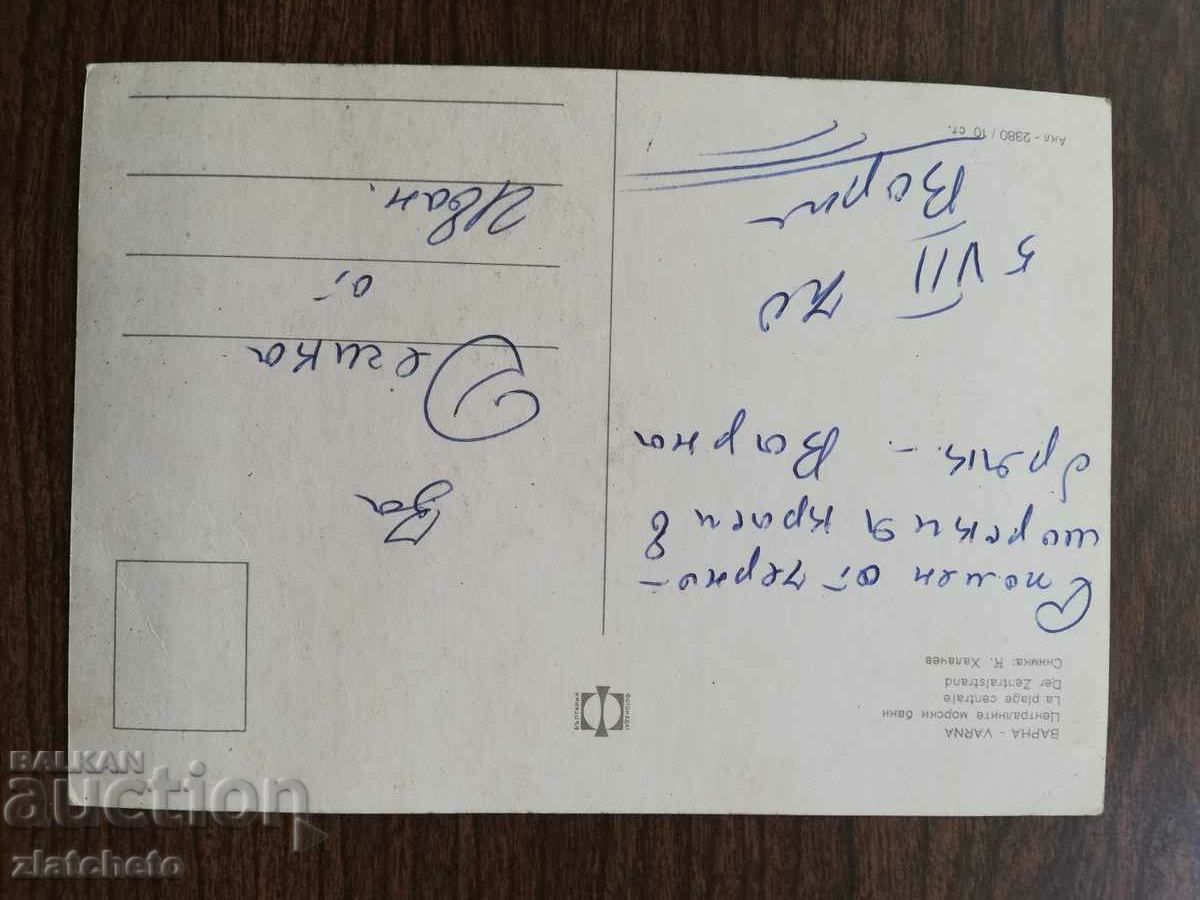 ВАРНА - VARNA
Централните морски бани
La plage centrale
Der Zentralstrand
Снимка: К. Халачев
Спомен от черно-
морския край в
Варна
5 VII 70
Варна
Акл - 2380 / 10 ст.
БЪЛГАРИЯ
ФОТОИЗДАТ
За
от
Иван.
BALKAN
auction
zlatcheto